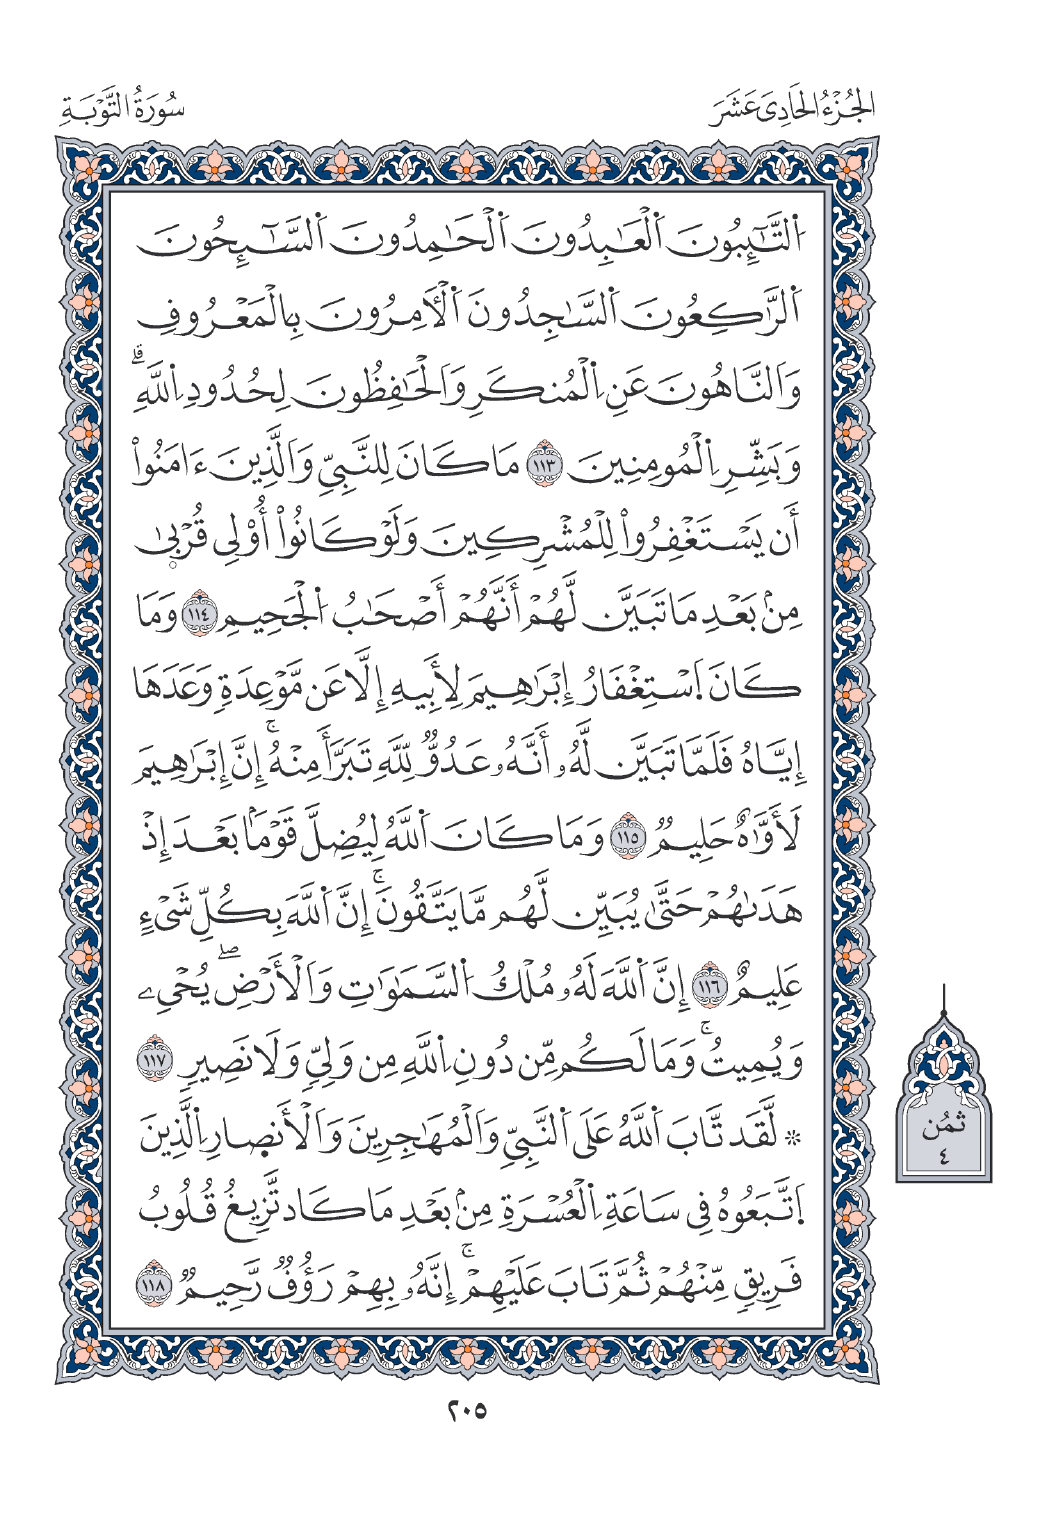 الجُزْءُ الحَادِي عَشَرَ
سُورَةُ التَّوْبَةِ
اَ۬لتَّٰٓئِبُونَ اَ۬لْعَٰبِدُونَ اَ۬لْحَٰمِدُونَ اَ۬لسَّٰٓئِحُونَ
اَ۬لرَّٰكِعُونَ اَ۬لسَّٰجِدُونَ اَ۬لْأٓمِرُونَ بِالْمَعْرُوفِ
وَالنَّاهُونَ عَنِ اِ۬لْمُنكَرِ وَالْحَٰفِظُونَ لِحُدُودِ اِ۬للَّهِۗ
وَبَشِّرِ اِ۬لْمُومِنِينَ ١١٣ مَا كَانَ لِلنَّبِيِّ وَالَّذِينَ ءَامَنُواْ
أَن يَسْتَغْفِرُواْ لِلْمُشْرِكِينَ وَلَوْ كَانُواْ أُوْلِي قُرْب۪يٰ
مِنۢ بَعْدِ مَا تَبَيَّنَ لَهُمْ أَنَّهُمْ أَصْحَٰبُ اُ۬لْجَحِيمِ ١١٤ وَمَا
كَانَ اَ۪سْتِغْفَارُ إِبْرَٰهِيمَ لِأَبِيهِ إِلَّا عَن مَّوْعِدَةٖ وَعَدَهَا
إِيَّاهُ فَلَمَّا تَبَيَّنَ لَهُۥ أَنَّهُۥ عَدُوّٞ لِّلهِ تَبَرَّأَ مِنْهُۚ إِنَّ إِبْرَٰهِيمَ
لَأَوَّٰهٌ حَلِيمٞ ١١٥ وَمَا كَانَ اَ۬للَّهُ لِيُضِلَّ قَوْماَۢ بَعْدَ إِذْ
هَدَىٰهُمْ حَتَّىٰ يُبَيِّنَ لَهُم مَّا يَتَّقُونَۚ إِنَّ اَ۬للَّهَ بِكُلِّ شَيْءٍ
عَلِيمٌ ١١٦ إِنَّ اَ۬للَّهَ لَهُۥ مُلْكُ اُ۬لسَّمَٰوَٰتِ وَالْأَرْضِۖ يُحْيِۦ
وَيُمِيتُۚ وَمَا لَكُم مِّن دُونِ اِ۬للَّهِ مِن وَلِيّٖ وَلَا نَصِيرٖ ١١٧
۞ لَّقَد تَّابَ اَ۬للَّهُ عَلَى اَ۬لنَّبِيِّ وَالْمُهَٰجِرِينَ وَالْأَنص۪ارِ اِ۬لَّذِينَ
اَ۪تَّبَعُوهُ فِي سَاعَةِ اِ۬لْعُسْرَةِ مِنۢ بَعْدِ مَا كَاد تَّزِيغُ قُلُوبُ
فَرِيقٖ مِّنْهُمْ ثُمَّ تَابَ عَلَيْهِمْۚ إِنَّهُۥ بِهِمْ رَؤُفٞ رَّحِيمٞ ١١٨
ثمُن
٤
٢٠٥